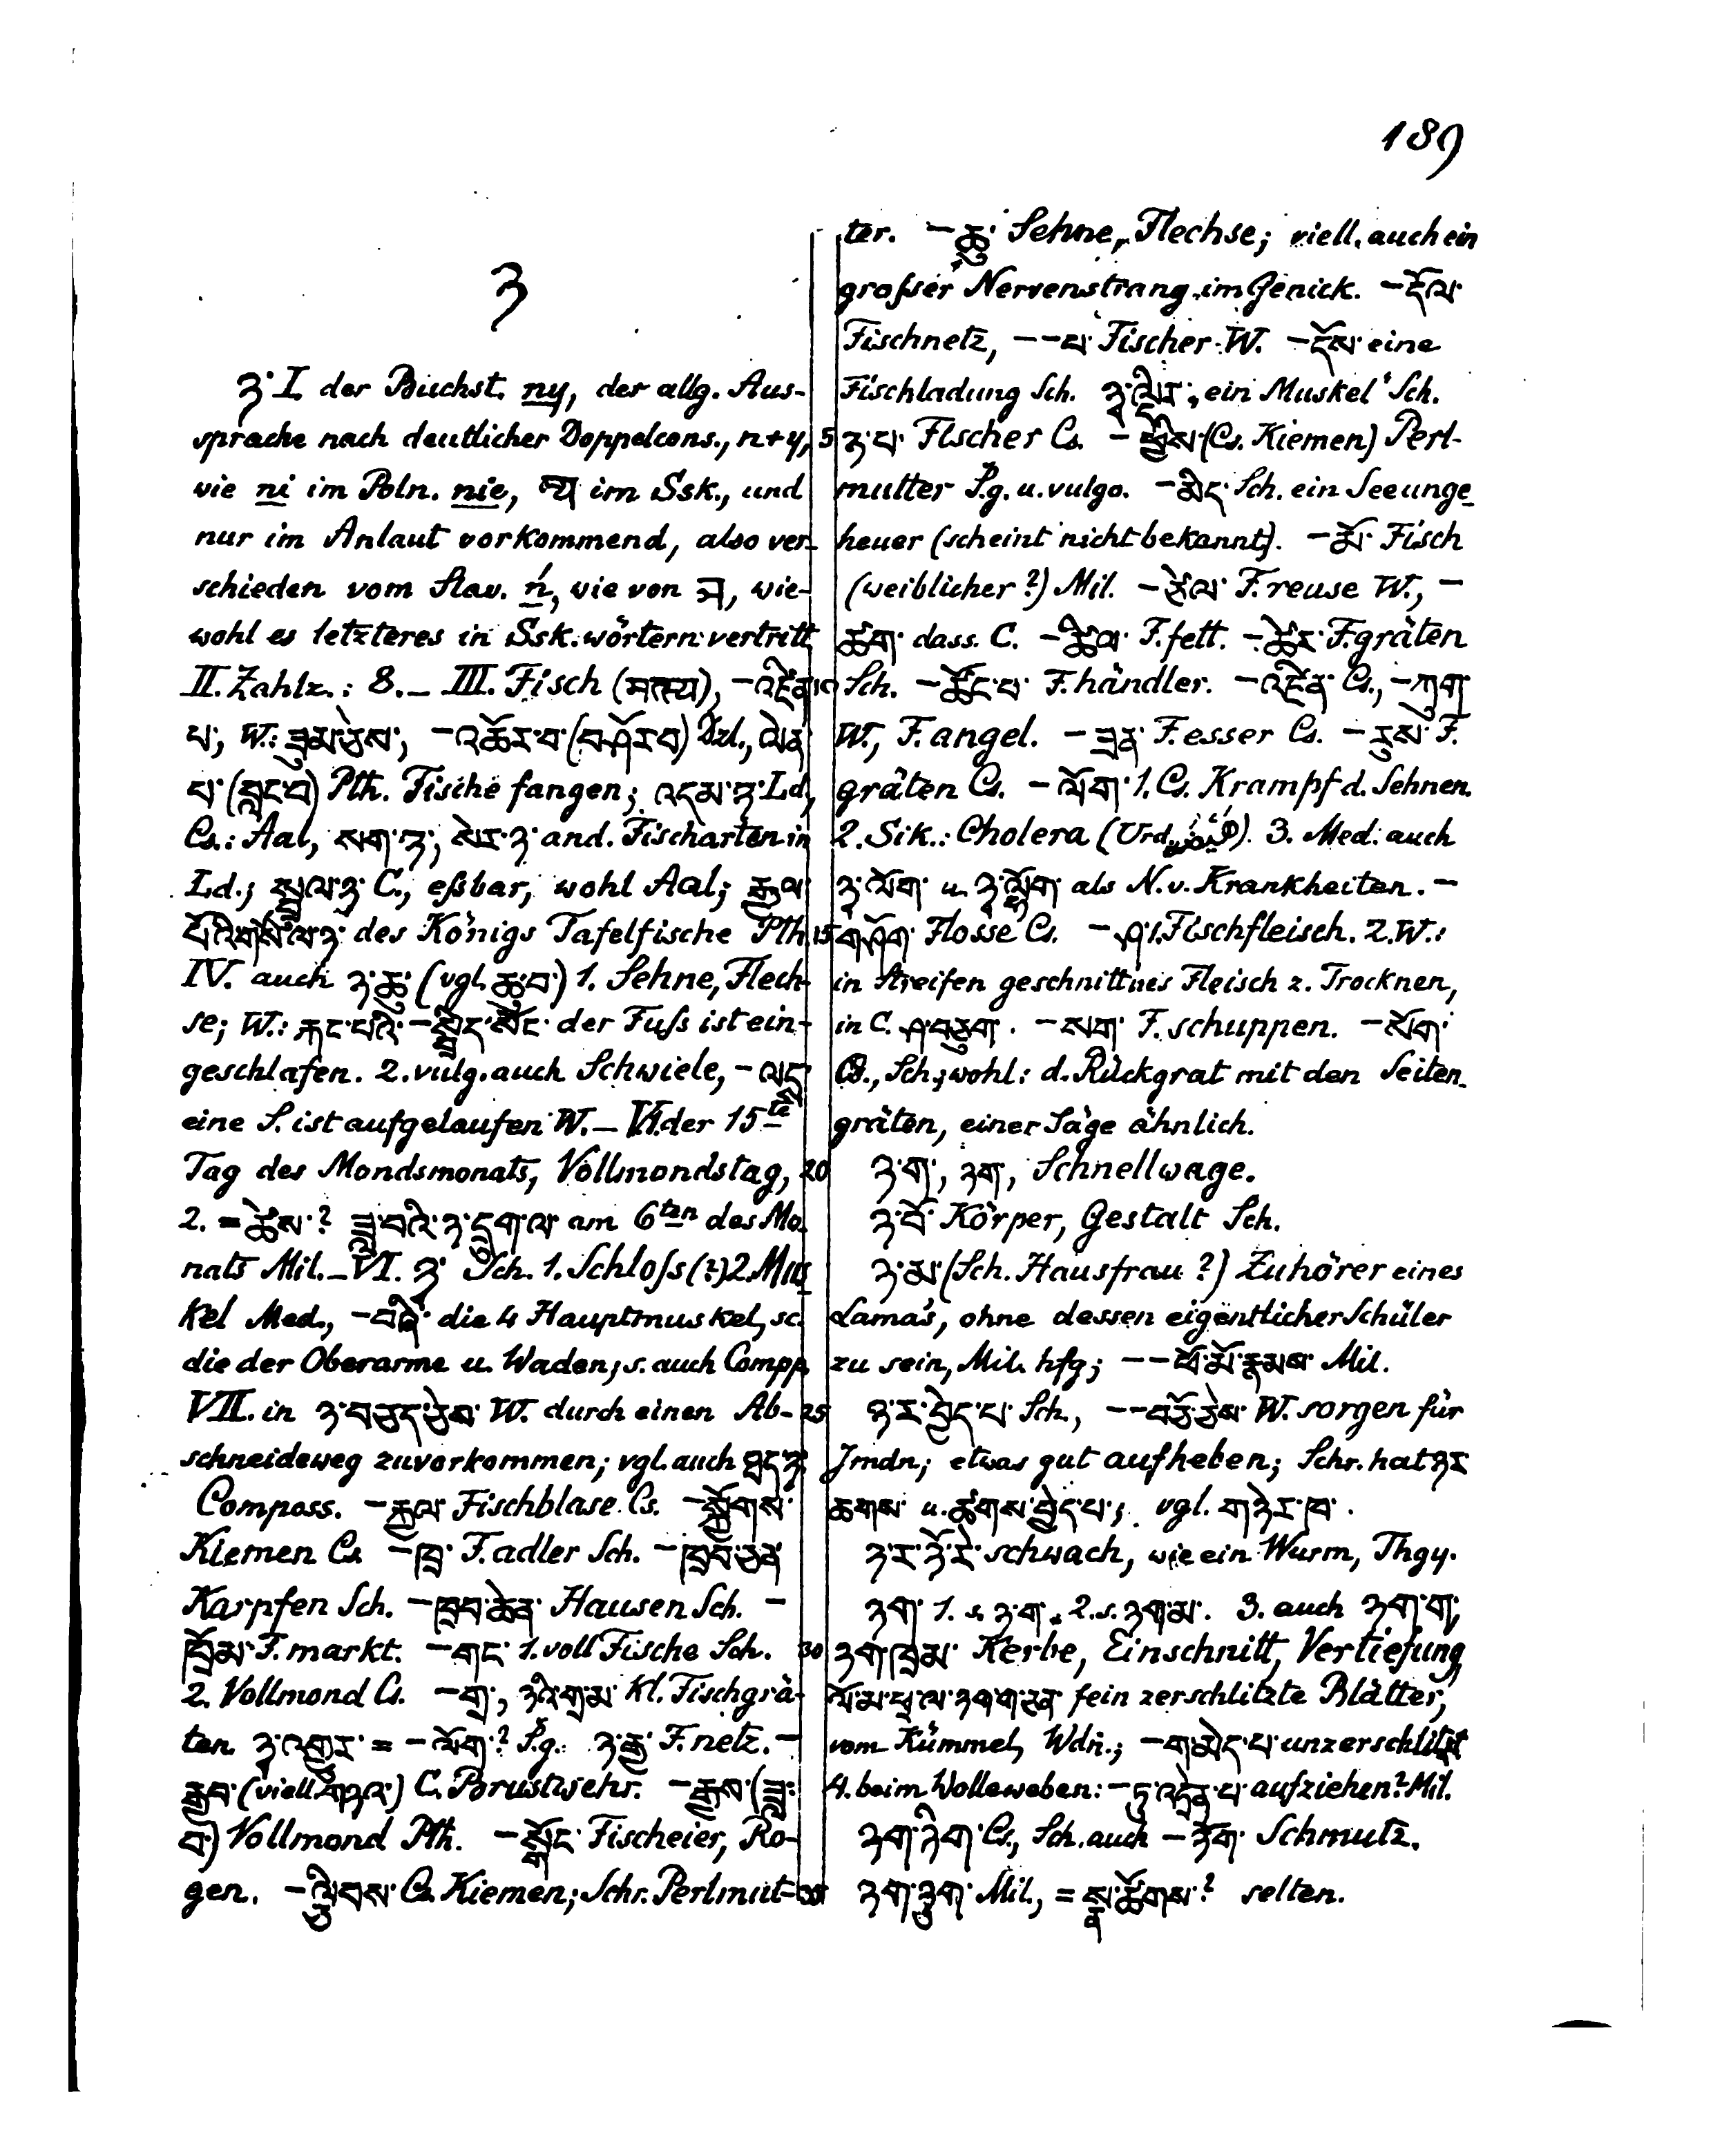 189
ཉ
ཉ་ I. der Buchst. ny, der allg. Aus-
sprache nach deutlicher Doppelcons., n+y,
wie ni im Poln. nie, न्य im Ssk., und
nur im Anlaut vorkommend, also ver-
schieden vom Slav. ń, wie von ञ, wie-
wohl es letzteres in Ssk.wörtern vertritt.
II. Zahlz.: 8. _ III. Fisch (मत्स्य), -འཛིན་
པ་, W.: ཟུམ་ཅེས་, -འཚོར་བ་ (བཤོར་བ) Dzl., ལེན་
པ་ (བླང་བ) Pth. Fische fangen; འདམ་ཉ་ Ld.,
Cs.: Aal, སག་ཉ་, སེར་ཉ་ and. Fischarten in
Ld.; སྦྲུལ་ཉ་ C., eßbar, wohl Aal; རྒྱལ་
པོའི་གསོལ་ཉ་ des Königs Tafelfische Pth.
IV. auch ཉ་ཆུ་ (vgl. ཆུ་བ་) 1. Sehne, Flech-
se; W.: རྐང་པའི་ - སྦྲིད་སོང་ der Fuß ist ein-
geschlafen. 2. vulg. auch Schwiele, -
eine S. ist aufgelaufen W. _ V. der 15te
Tag des Mondsmonats, Vollmondstag,
2. = ཚེས་? ཟླ་བའི་ཉ་དྲུག་ལ་ am 6ten des Mo-
nats Mil. _ VI. ཉྭ་ Sch. 1. Schloß (?) 2. Mus
kel Med., -བཞི་ die 4 Hauptmuskel, sc.
die der Oberarme u. Waden; s. auch Compp.
VII. in ཉ་བཅད་ཅེས་ W. durch einen Ab-
schneideweg zuvorkommen; vgl. auch
Composs. -རྒྱལ་ Fischblase Cs. -སྐྱོགས་
Kiemen Cs. -ཁྲ་ F.adler Sch. -ཁྲབ་ཅན་
Karpfen Sch. -ཁྲབ་ཆེན་ Hausen Sch. -
ཁྲོམ་ F.markt. -གང་ 1. voll Fische Sch.
2. Vollmond Cs. -གྲ་, ཉའི་གྲ་མ་ kl. Fischgrä-
ten. ཉྭ་འགྱུར་ = -ལོག་? S.g. ཉ་རྒྱ་ F.netz. -
རྒྱབ་ (viell. ) C. Brustwehr. -རྒྱས་ (ཟླ་
བ་) Vollmond Pth. -སྒོང་ Fischeier, Ro-
gen. - Cs. Kiemen; Schr. Perlmut-
ter. -ཆུ་ Sehne, Flechse; viell. auch ein
großer Nervenstrang im Genick. -དོལ་
Fischnetz, --པ་ Fischer W. -དོས་ eine
Fischladung Sch. ein Muskel Sch.
5 ཉ་པ་ Fischer Cs. -ཕྱིས་ (Cs. Kiemen) Perl-
mutter S.g. u. vulgo. -མིད་ Sch. ein Seeunge-
heuer (scheint nicht bekannt). -མོ་ Fisch
(weiblicher?) Mil. -ཙེལ་ F.reuse W., -
ཚག་ dass. C. -ཚིལ་ F.fett. -ཚེར་ F.gräten
10 Sch. -ཚོང་པ་ F.händler. -འཛིན་ Cs., -ཀུག་
W., F.angel. -ཟན་ F.esser Cs. -རུས་ F.
gräten Cs. -ལོག་ 1. Cs. Krampf d. Sehnen.
2. Sik.: Cholera (Urd. ). 3. Med. auch
ཉྭ་ལོག་ u. ཉྭ་ལྷོག་ als N. v. Krankheiten. -
15 གཤོག་ Flosse Cs. -ཤ་ 1. Fischfleisch. 2. W.:
in Streifen geschnittnes Fleisch z. Trocknen,
in C. ཤ་བཅུག་. -སག་ F.schuppen. -སོག་
Cs., Sch.; wohl: d. Rückgrat mit den Seiten-
gräten, einer Säge ähnlich.
20 ཉ་ག་, ཉག་, Schnellwage.
ཉ་བོ་ Körper, Gestalt Sch.
ཉ་མ་ (Sch. Hausfrau?) Zuhörer eines
Lama's, ohne dessen eigentlicher Schüler
zu sein, Mil. hfg; --ཕོ་མོ་རྣམས་ Mil.
25 ཉ་ར་བྱེད་པ་ Sch., --བཅོ་ཅེས་ W. sorgen für
Jmdn; etwas gut aufheben; Schr. hat ཉར
ཚགས་ u. ཚགས་བྱེད་པ་; vgl. གཉེར་ཁ་.
ཉ་ར་ཉོ་རེ་ schwach, wie ein Wurm, Thgy.
ཉག་ 1. s. ཉ་ག་. 2. s. ཉག་མ་. 3. auch ཉག་ག་,
30 ཉག་ཁྲམ་ Kerbe, Einschnitt, Vertiefung,
ལོ་མ་ཕྲ་ལ་ཉག་ག་ཅན་ fein zerschlitzte Blätter,
vom Kümmel, Wdn.; -ག་མེད་པ་ unzerschlitzt
4. beim Wolleweben: -ཏུ་འདྲེན་པ་ aufziehen? Mil.
ཉག་ཉིག་ Cs., Sch. auch -ཉོག་ Schmutz.
35 ཉག་ཉུག་ Mil., = སྣ་ཚོགས་? selten.